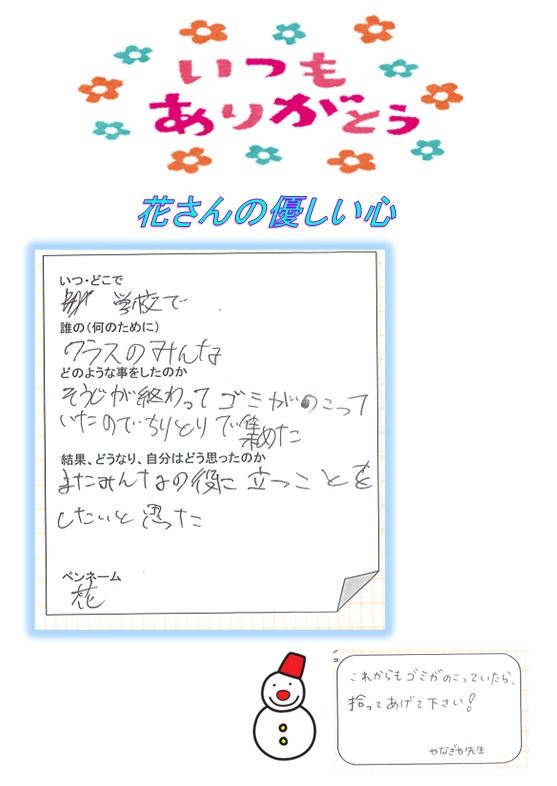 いつも
ありがとう
花さんの優しい心
いつ・どこで
学校で
誰の(何のために)
クラスのみんな
どのような事をしたのか
そうじが終わってゴミがのこって
いたのでちりとりで集めた
結果、どうなり、自分はどう思ったのか
またみんなの役に立つことを
したいと思った
ペンネーム
花
これからもゴミがのこっていたら、
拾ってあげて下さい!
やなぎや先生